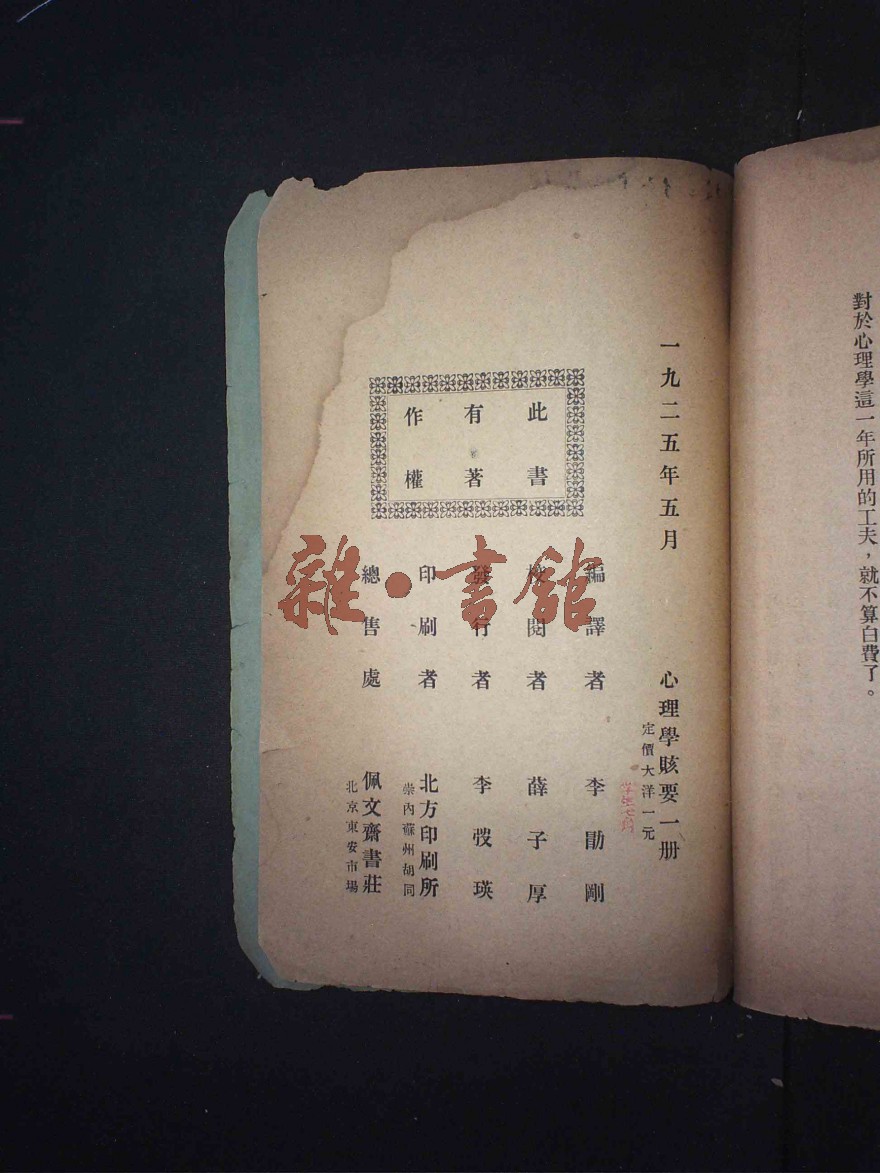 對於心理學這一年所用的工夫，就不算白費了。
一九二五年五月
心理學賅要一册
定價大洋一元
此書
有著
作權
編譯者 李勖剛
校閱者 薛子厚
發行者 李瑛
印刷者 北方印刷所
崇內蘇州胡同
總售處 佩文齋書莊
北京東安市場
雜·書館